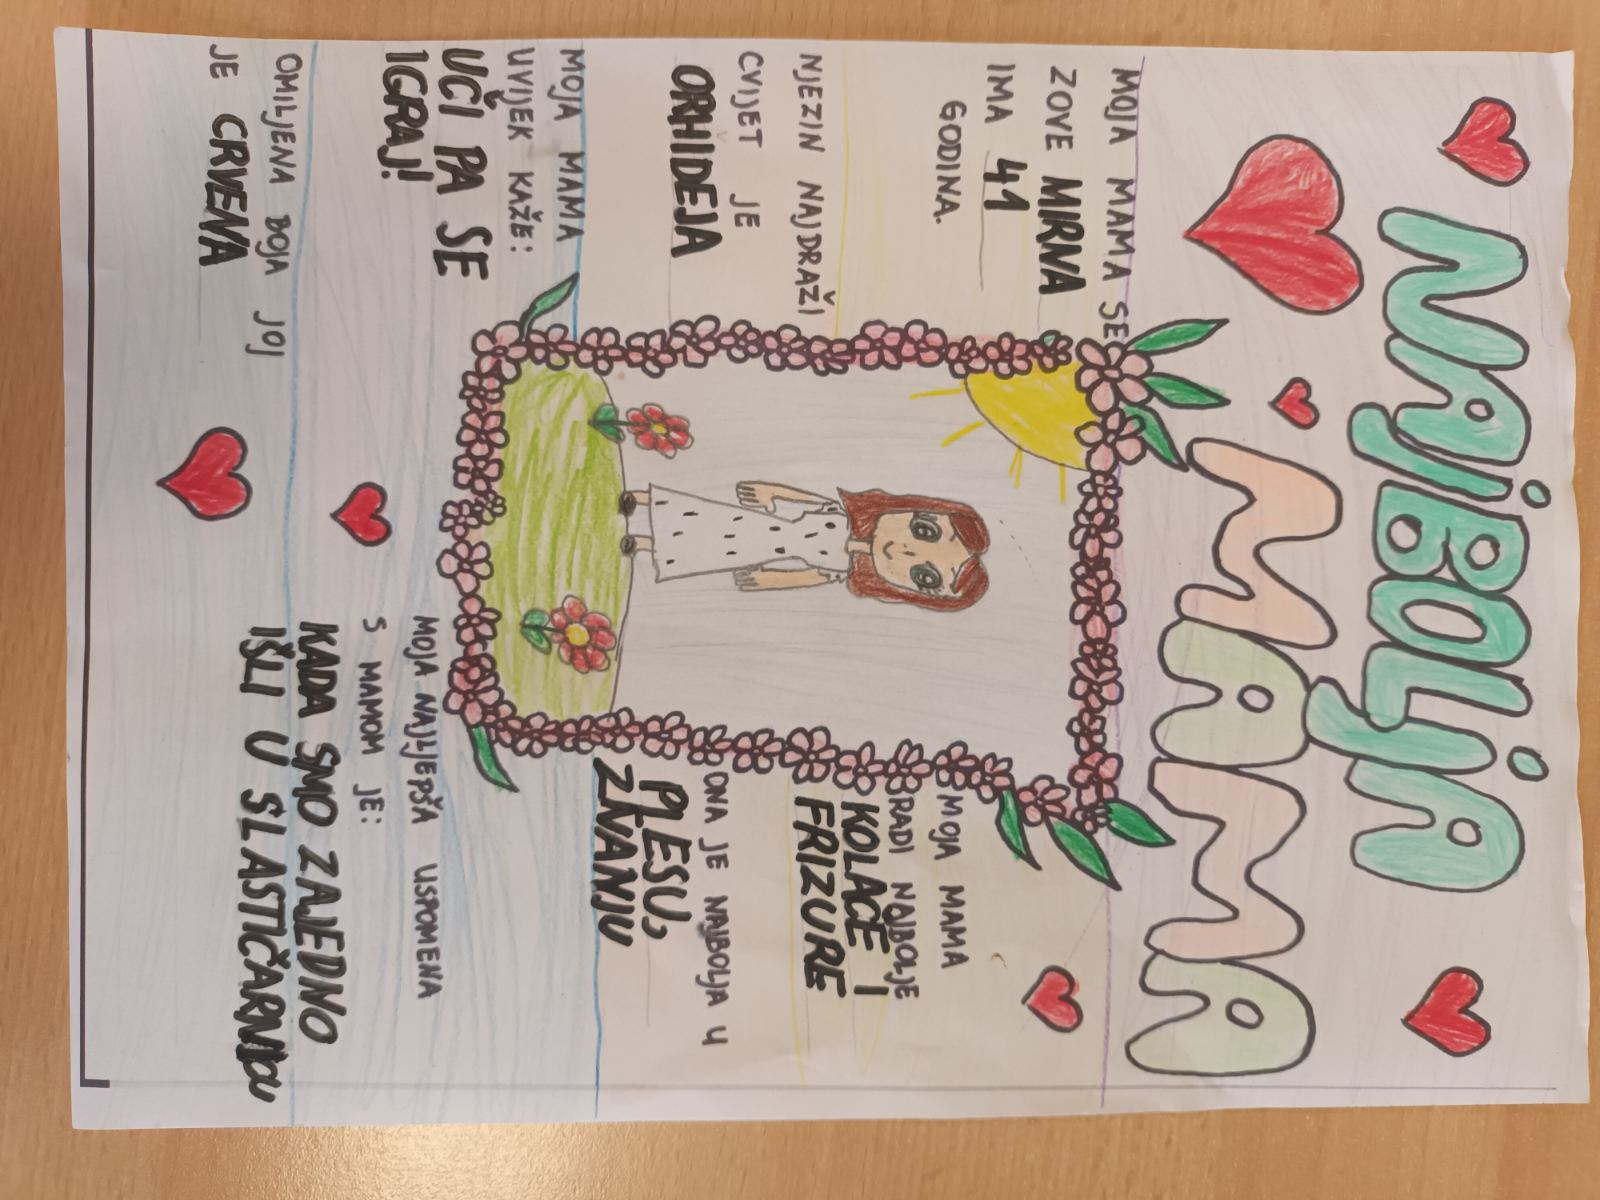 NAJBOLJA
MAMA
MOJA MAMA SE
ZOVE MIRNA
IMA 41
GODINA.
NJEZIN NAJDRAŽI
CVIJET JE
ORHIDEJA
MOJA MAMA
UVIJEK KAŽE:
UČI PA SE
IGRAJ!
OMILJENA BOJA JOJ
JE CRVENA
MOJA MAMA
RADI NAJBOLJE
KOLAČE I
FRIZURE
ONA JE NAJBOLJA U
PLESU,
ZNANJU
MOJA NAJLJEPŠA USPOMENA
S MAMOM JE:
KADA SMO ZAJEDNO
IŠLI U SLASTIČARNICU